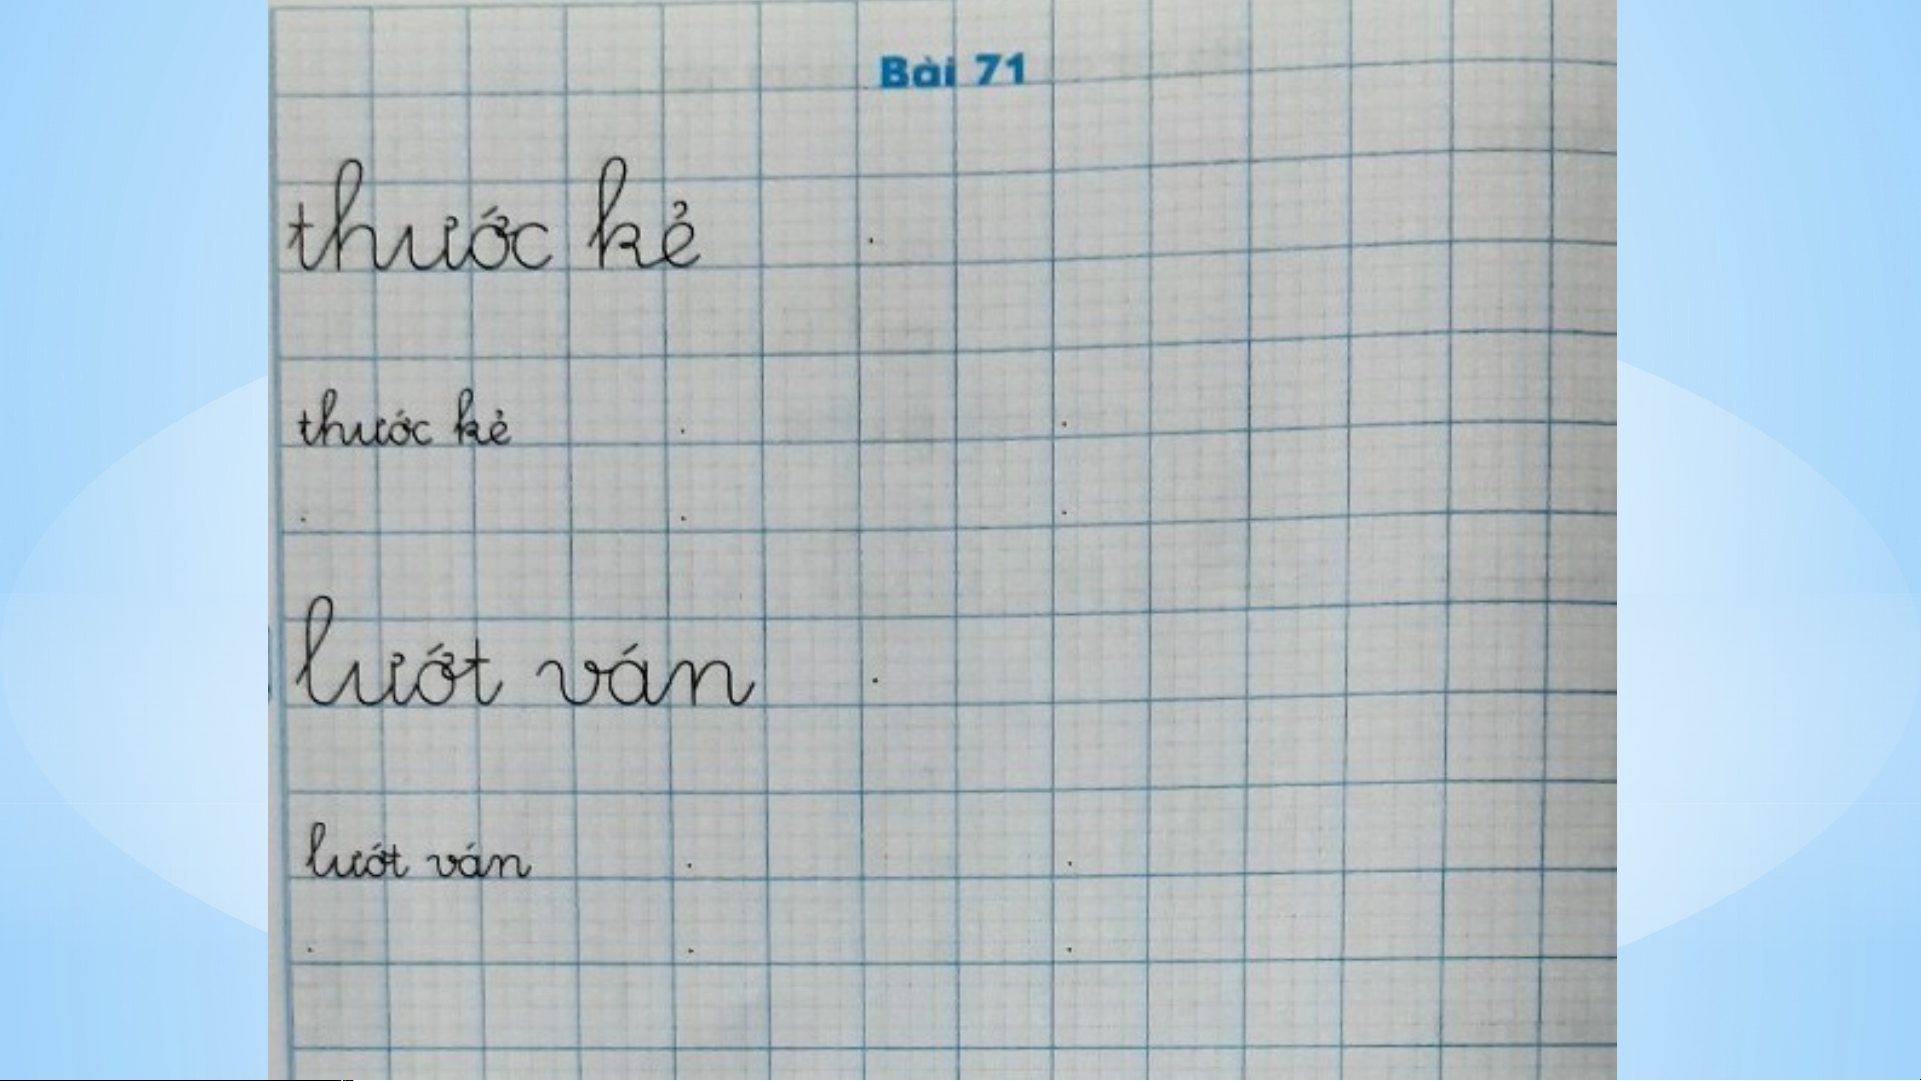 Bài 71
thước kẻ
thước kẻ
lướt ván
lướt ván